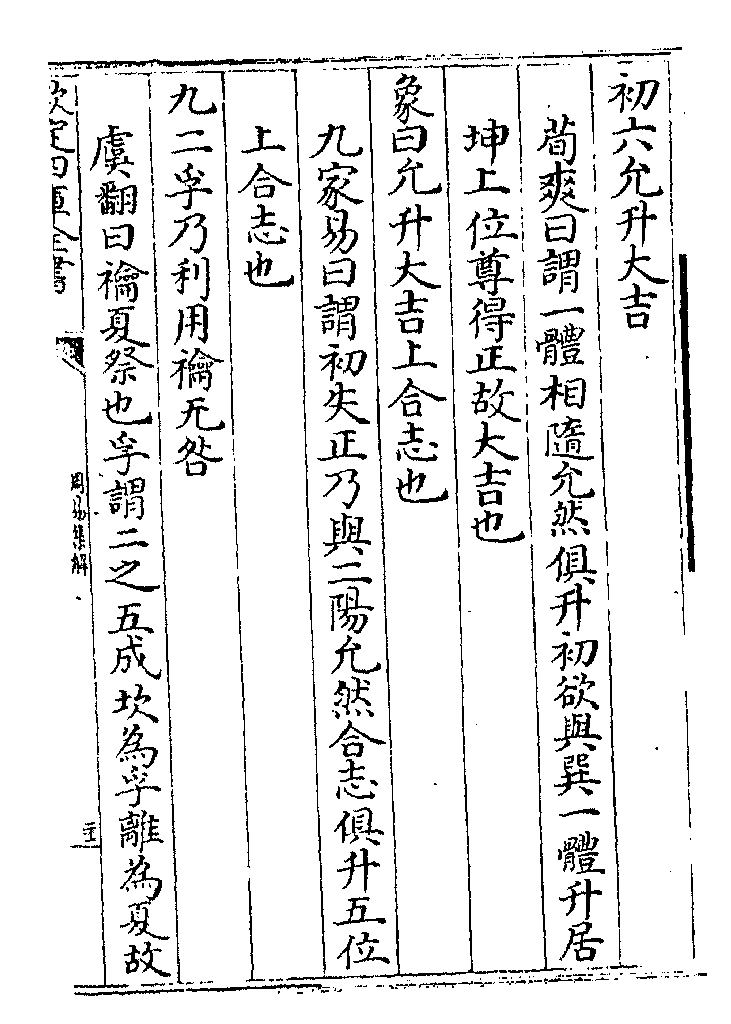 初六允升大吉
荀爽曰謂一體相隨允然俱升初欲與巽一體升居
坤上位尊得正故大吉也
象曰允升大吉上合志也
九家易曰謂初失正乃與二陽允然合志俱升五位
上合志也
九二孚乃利用禴无咎
虞翻曰禴夏祭也孚謂二之五成坎為孚離為夏故
欽定四庫全書
周易集解